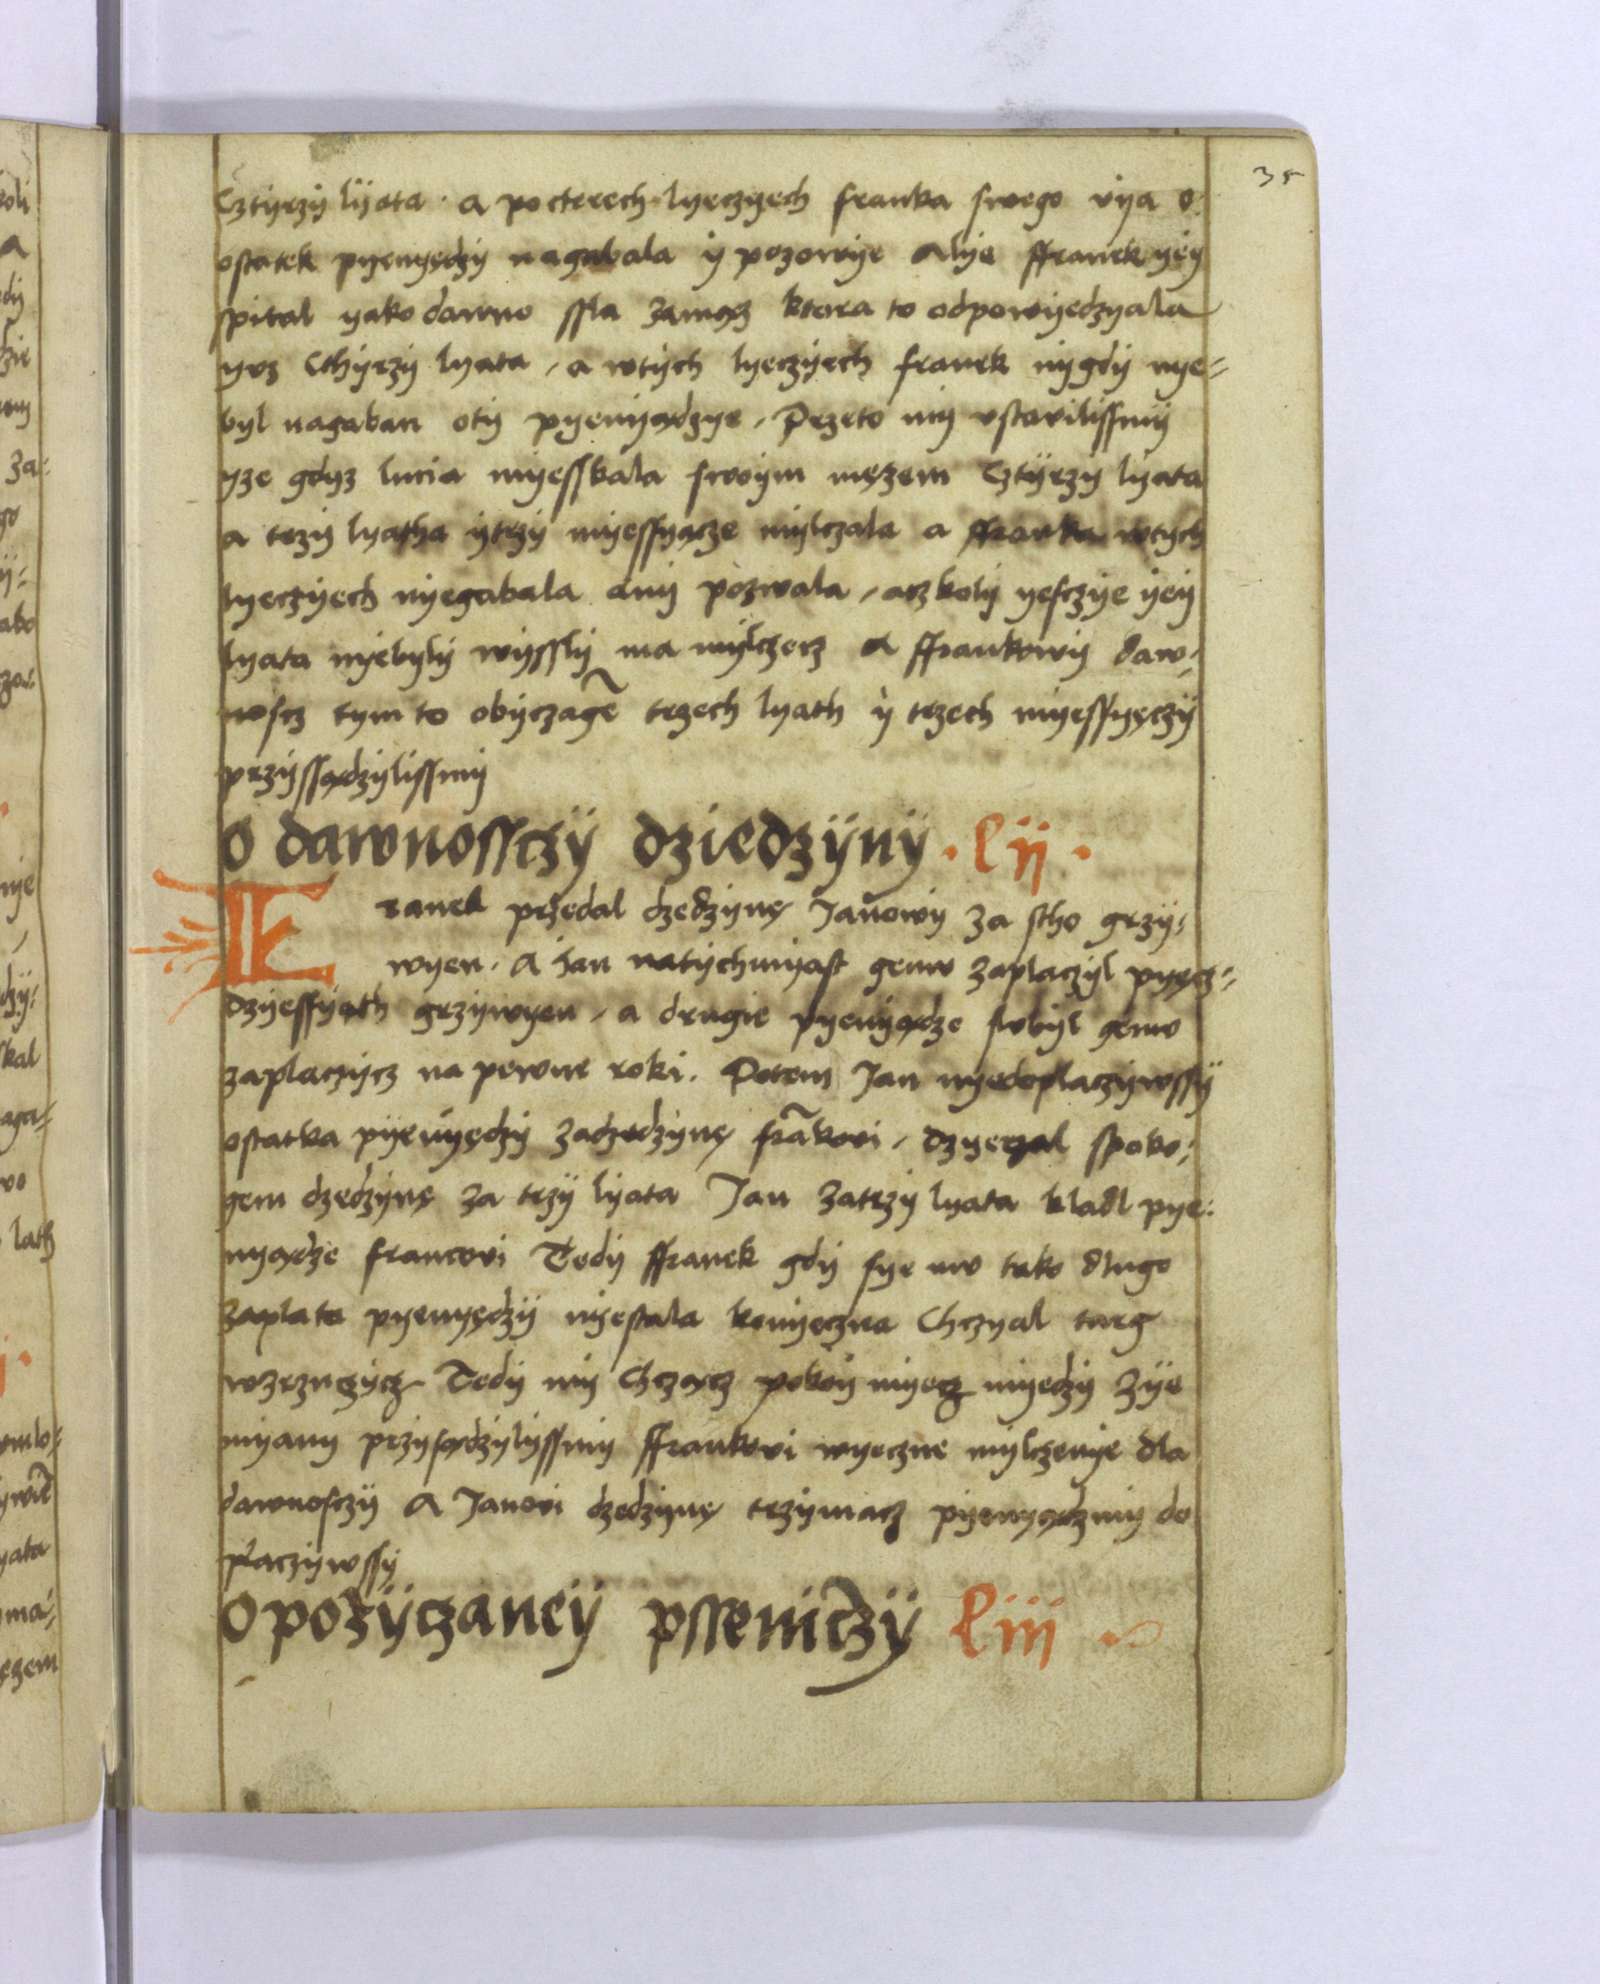 35
Cztyrzÿ lÿata · a po cterech lyeczyech franka swego vya o
ostatek pyenyędzÿ nagabala ÿ pozowye Alye ffranek yey
spital yako dawno ssla zamąz ktora to odpowyedzyala
yvz Cthÿrzÿ lyata / a wtych lyeczyech franek nÿgdÿ nye=
byl nagaban otÿ pyenyądzye / Przeto mÿ vstavilissmÿ
yze gdyz lucia myesskala swoÿm mężem Cztÿrzÿ lyata
a trzÿ lyatha ÿtrzÿ myessyącze mylczala a ffranka wtych
lyeczyech nyegabala anÿ pozwala / aczkolÿ yesczye ÿeÿ
lyata nyebylÿ wyssly ma mylczecz A ffrankowÿ daw=
noscz tym to obyczagē trzech lyath ÿ trzech myessyęczÿ
przÿssądzÿlissmÿ
O dawnossczÿ dziedzÿnÿ · lij ·
F ranek przedal dzedzynę Janowÿ za stho grzÿ=
wyen · A Jan natychmyast gemv zaplaczyl pyęcz=
dzyessyąth grzywyen / a drugie pyenyądze slvbyl gemv
zaplaczycz na pewne roki. Potem Jan nyedoplaczywssÿ
ostatka pyenyędzÿ zadzedzynę frākovi / dzyerzal spoko=
gem dzedzynę za trzÿ lyata Jan zatrzÿ lyata kladl pye=
nyądze francovi Tedÿ ffranek gdÿ sye mv tako dlugo
zaplata pyenyędzÿ nyestala konyeczna Chczyal targ
wzrzuczycz Tedÿ mÿ Chcząc pokoÿ myecz myedzÿ Zye
myanÿ przÿsądzÿlyssmÿ ffrankovi wyeczne mylczenye dla
dawnosczÿ A Janovi dzedzynę trzymacz pyenyądzmÿ do
placzÿwssÿ
O pozÿczaneÿ psseniczÿ liij